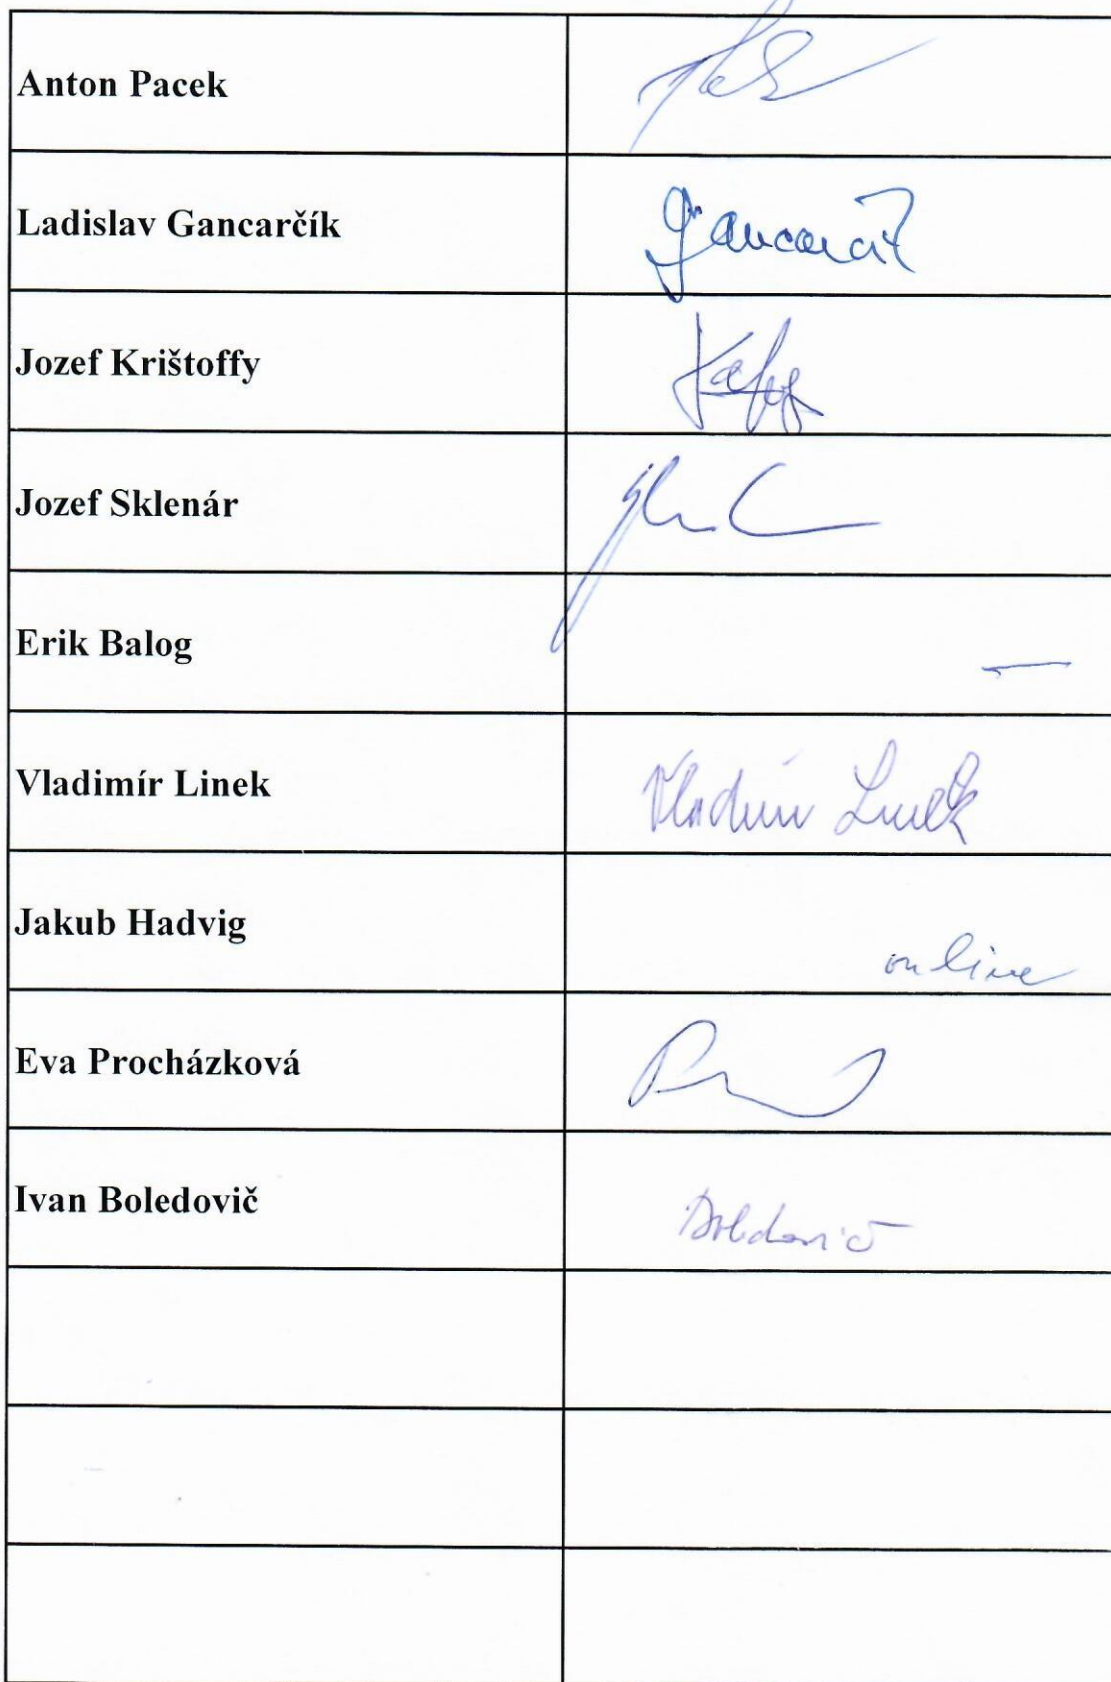 Anton Pacek
Ladislav Gancarčík
Jozef Krištoffy
Jozef Sklenár
Erik Balog
—
Vladimír Linek
Vladimír Linek
Jakub Hadvig
online
Eva Procházková
Ivan Boledovič
Boledovič